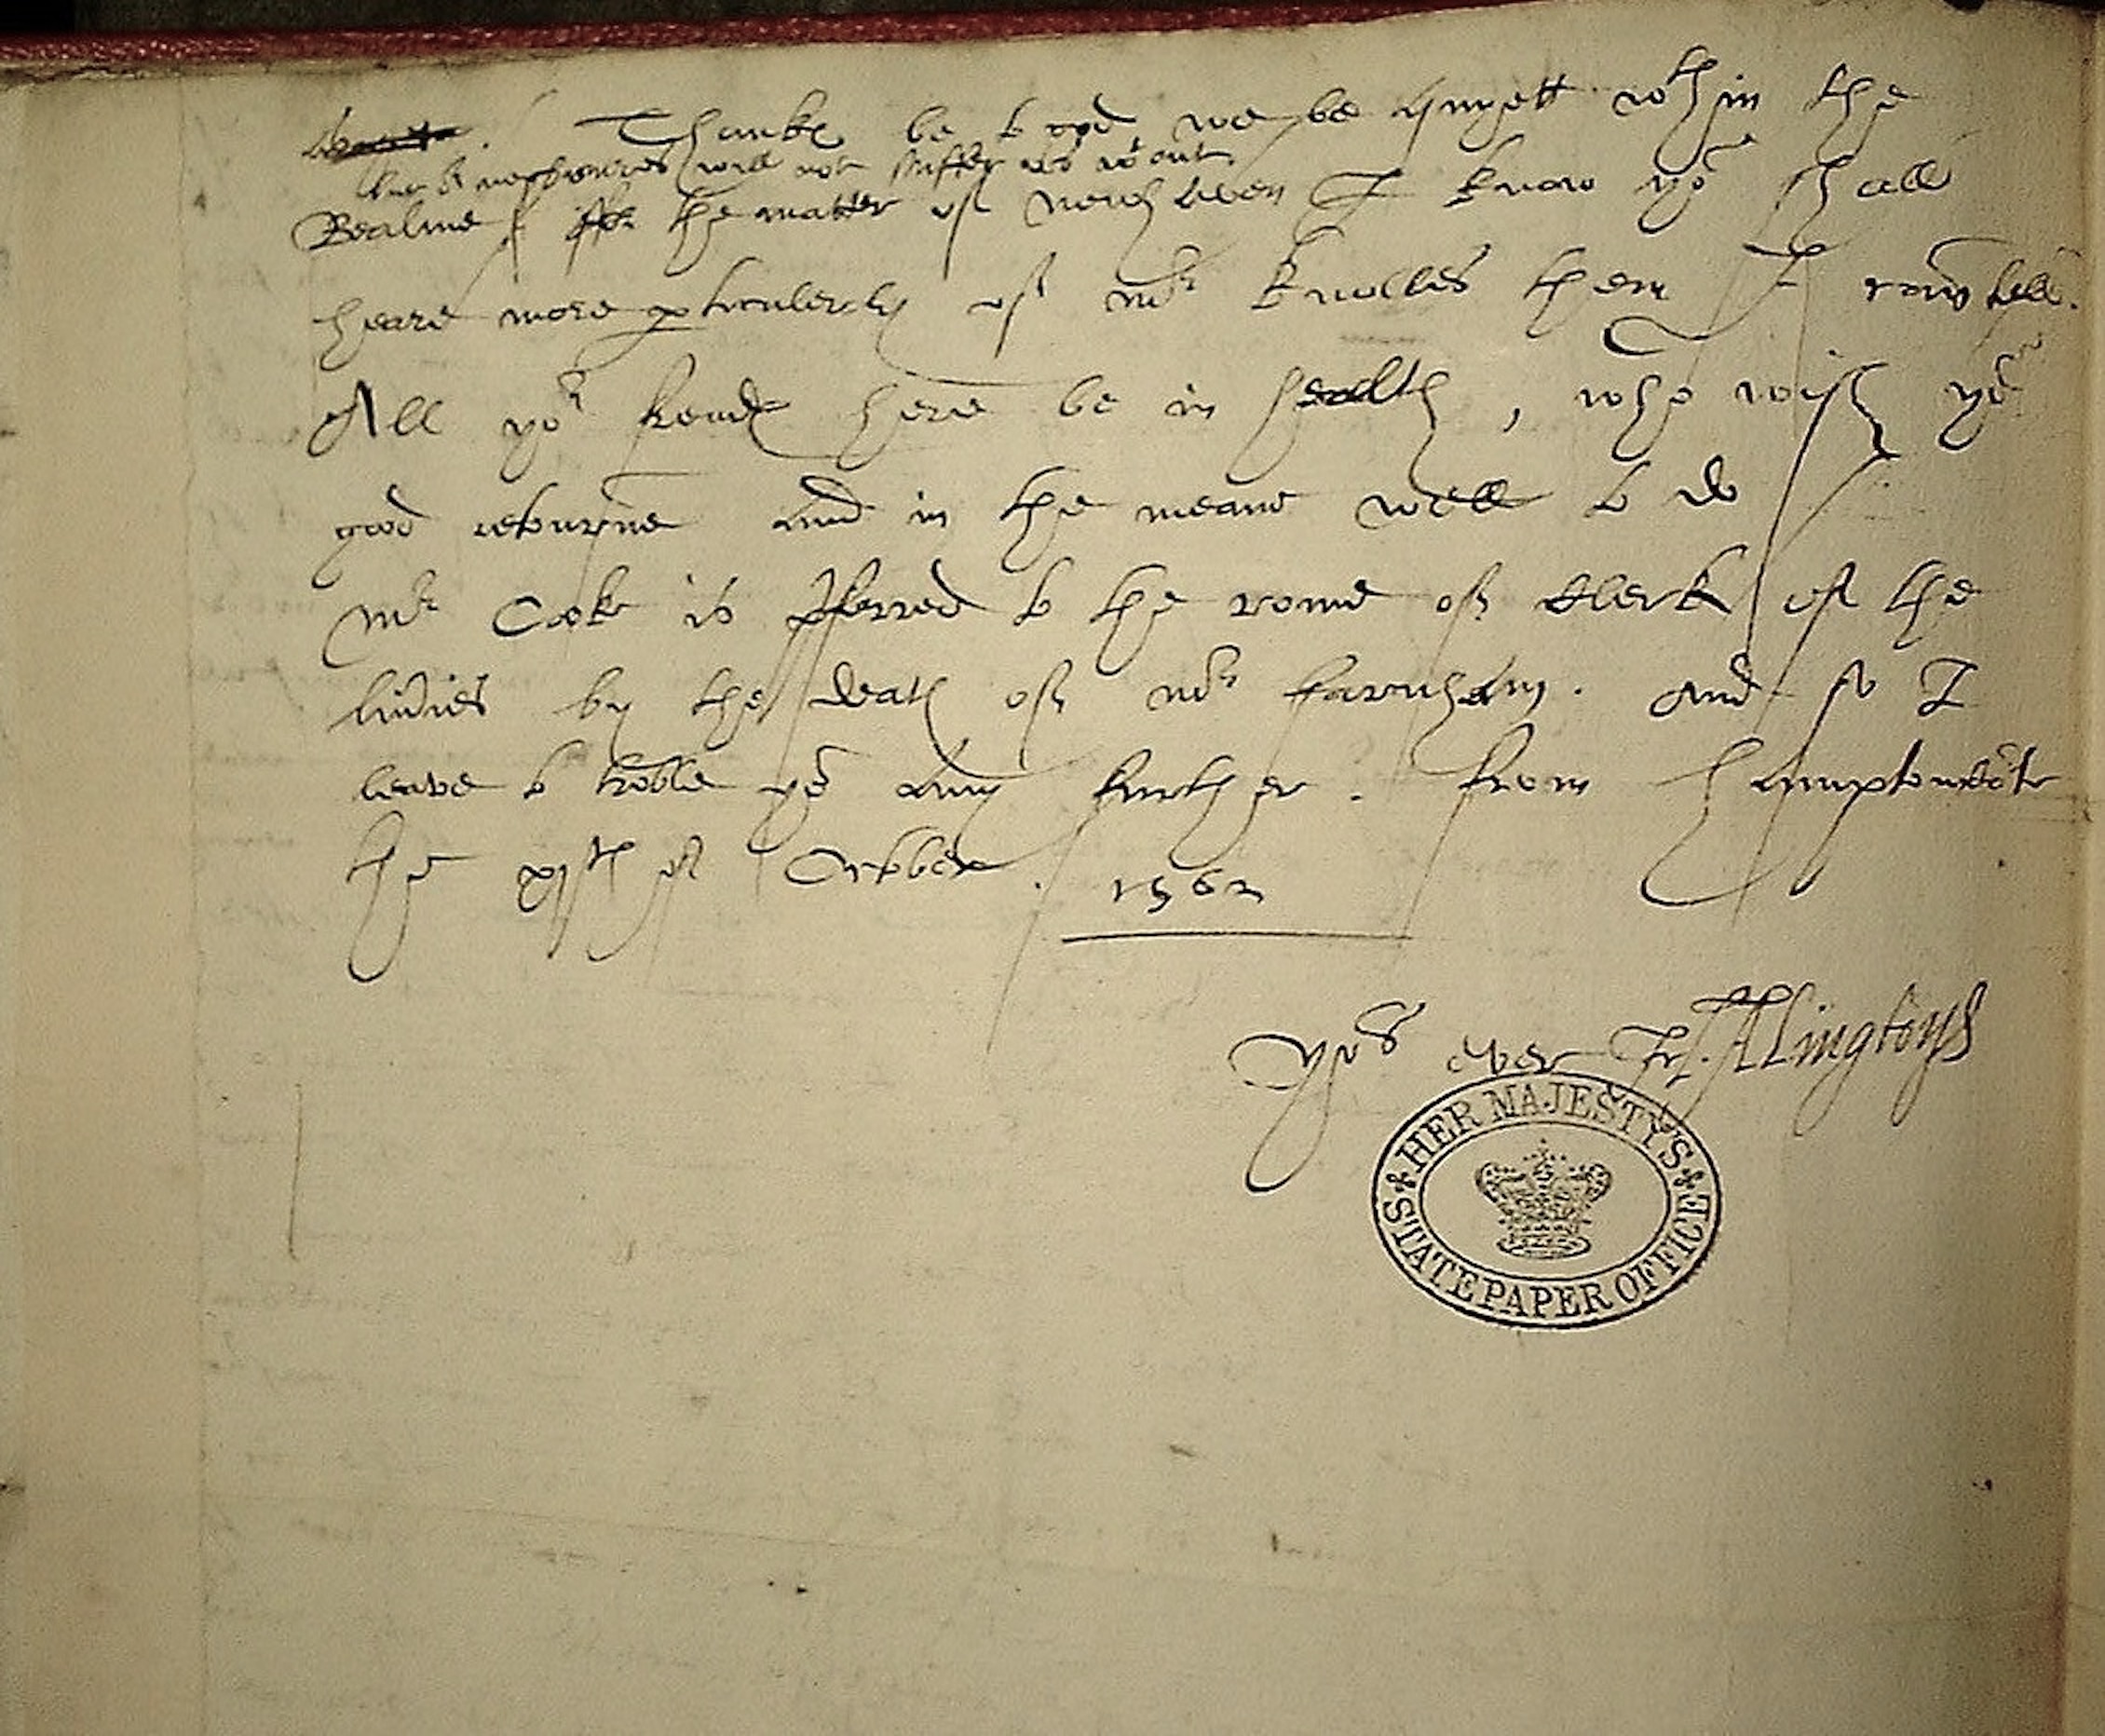 Thankes be to god, we be quyett wthin the
but or neighbours will not suffer us wtout.
Realme / the matter of newhaven I know yow shall
heare more pticulerly of Mr Knolles then I can tell.
All yor frendes here be in health, who wish yor
good retourne and in the meane well to do
Mr Coke is pferred to the rome of Clerk of the
liveries by the death of Mr farnham. And so I
leave to troble yow any further. from hamptoncorte
The xjth of October. 1562
yors ever Fr. Alingtons
HER MAJESTY'S
STATE PAPER OFFICE